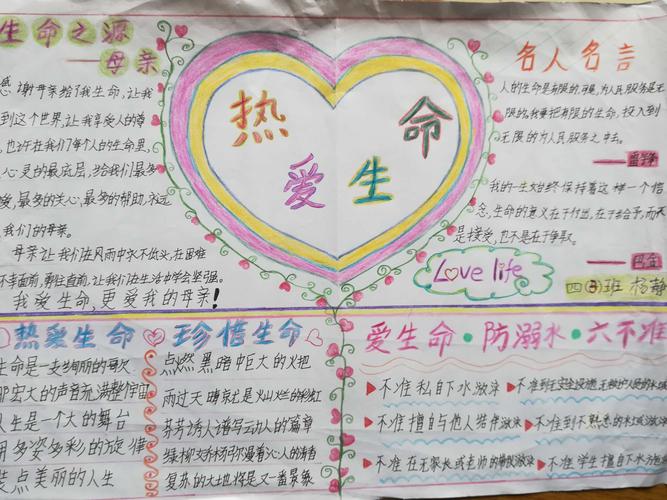 生命之源
——母亲
感谢母亲给了我生命,让我
到这个世界,让我享受人的尊
也许在我们每个人的生命里,
心灵的最底层,给我们最多
爱,最多的关心,最多的帮助,永远
我们的母亲。
母亲让我们在风雨中永不低头,在困难
不幸面前,勇往直前,让我们在生活中学会坚强。
我爱生命,更爱我的母亲!
热爱生命
Love life
名人名言
人的生命是有限的,可是,为人民服务是无
限的,我要把有限的生命,投入到
无限的为人民服务之中去。
——雷锋
我的一生始终保持着这样一个信
念,生命的意义在于付出,在于给予,而不
是接受,也不是在于争取。
——巴金
四(3)班 杨静
热爱生命 珍惜生命
生命是一支绚丽的歌
那宏大的声音充满整个宇宙
人生是一个大的舞台
用多姿多彩的旋律
装点美丽的人生
点燃黑暗中巨大的火把
雨过天晴京尤是火山烂的彩虹
芬芳诱人谱写动人的篇章
绿柳文乔杨弥漫着沁人的清香
复苏的大地将是又一番景象
爱生命·防溺水·六不准
不准私自下水游泳
不准擅自与他人结伴游泳
不准在无家长或老师的带领游泳
不准到无安全设施、无救护人员的水域
不准到不熟悉的水域游泳
不准学生擅自下水